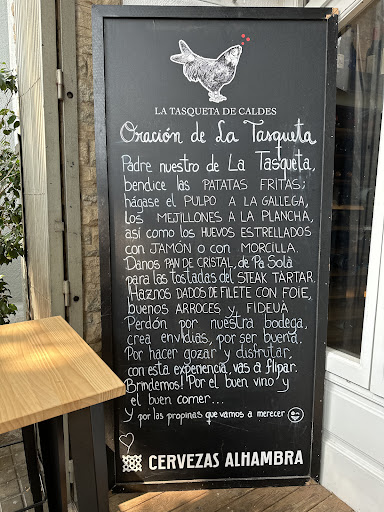 LA TASQUETA DE CALDES
Oración de La Tasqueta
Padre nuestro de La Tasqueta,
bendice las PATATAS FRITAS;
hágase el PULPO A LA GALLEGA,
los MEJILLONES A LA PLANCHA,
así como los HUEVOS ESTRELLADOS
con JAMÓN o con MORCILLA.
Danos PAN DE CRISTAL, de Pa Solà
para las tostadas del STEAK TARTAR.
Haznos DADOS DE FILETE CON FOIE,
buenos ARROCES y FIDEUÀ
Perdón por nuestra bodega,
crea envidias, por ser buena.
Por hacer gozar y disfrutar,
con esta experiencia, vas a flipar.
Brindemos! Por el buen vino y
el buen comer...
y por las propinas que vamos a merecer
CERVEZAS ALHAMBRA